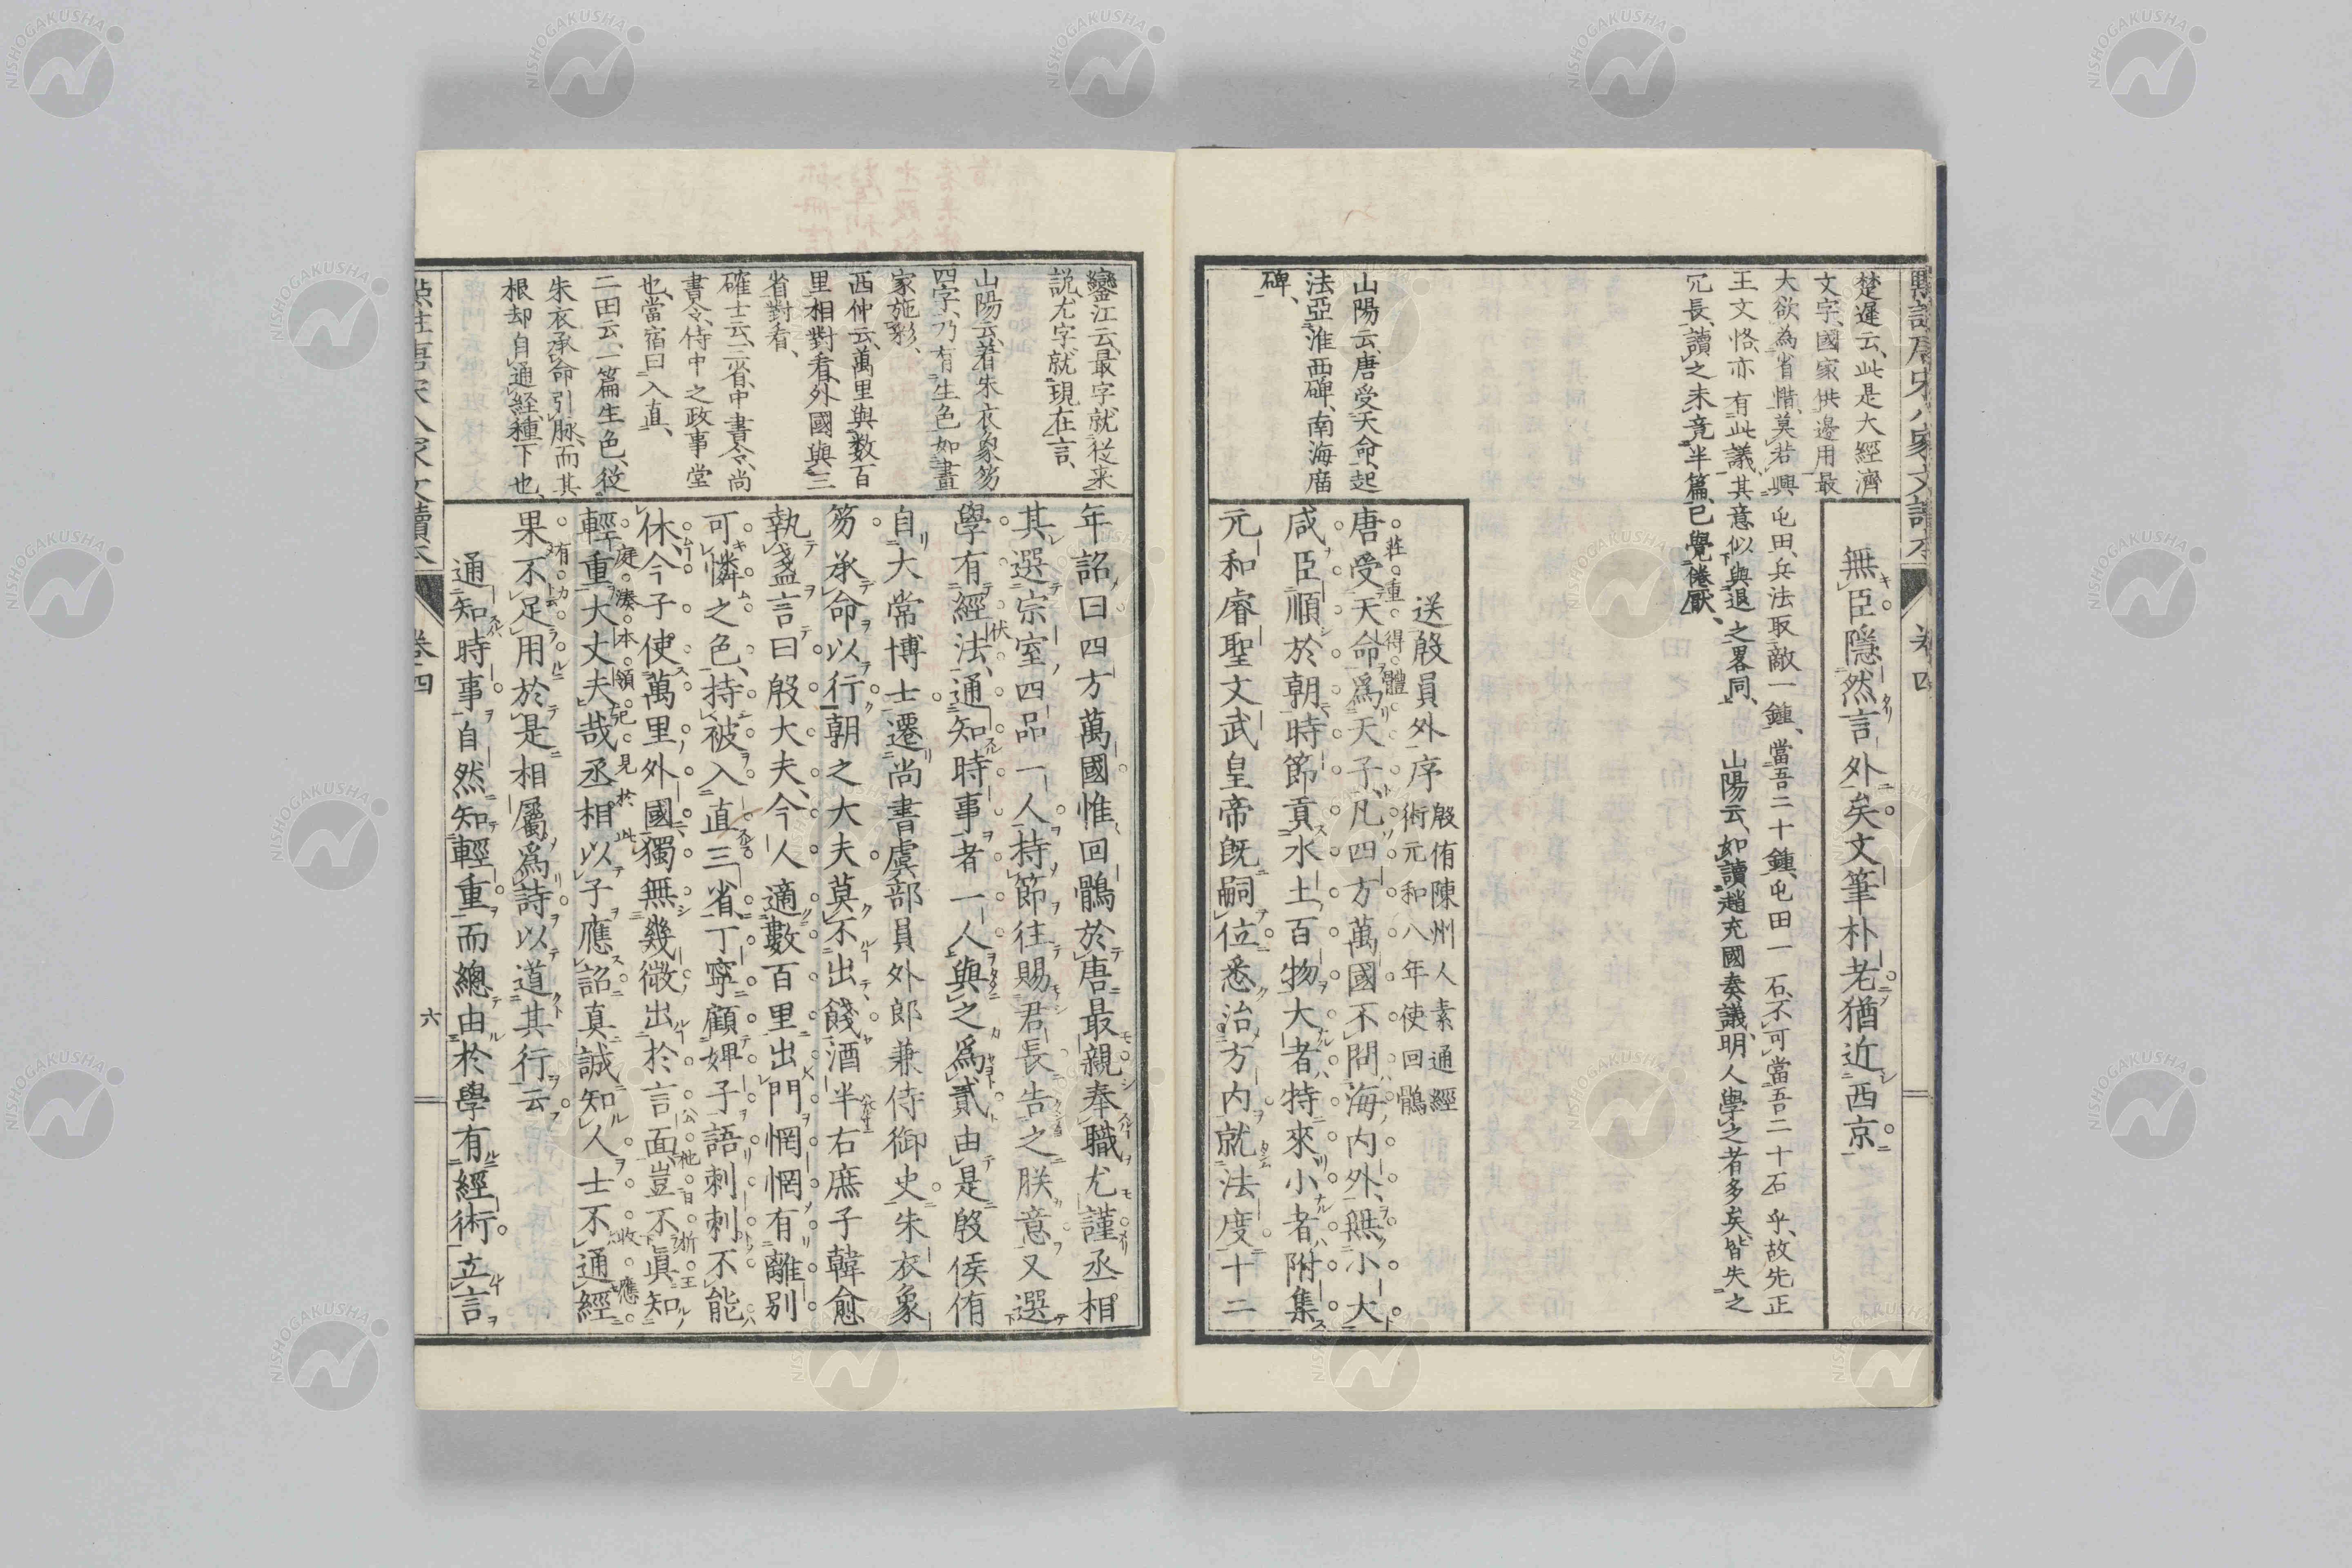 點註唐宋八家文讀本 卷四
楚遲云、此是大經濟
文字、國家供邊用最
大、欲為省惜、莫若興屯田、兵法取敵一鍾、當吾二十鍾、屯田一石、不可當吾二十石乎、故先正
王文恪、亦有此議、其意似與退之畧同、 山陽云、如讀趙充國奏議、明人學之者多矣、皆失之
冗長、讀之未竟半篇、已覺倦厭、
無臣隱然言外矣文筆朴老猶近西京
送殷員外序
殷侑陳州人素通經
術元和八年使回鶻
山陽云、唐受天命、起
法亞淮西碑、南海廟
碑、
唐受天命爲天子、凡四方萬國、不問海內外、無小大
莊重得體
咸臣順於朝、時節貢水土百物、大者特來、小者附集
元和睿聖文武皇帝既嗣位、悉治方內就法度十二
鑾江云、最字就從來
説、尤字就現在言、
山陽云、著朱衣象笏
四字、乃有生色、如畫
家施彩、
西仲云、萬里與數百
里相對看、外國與三
省對看、
確士云、三省、中書令、尚
書令、侍中之政事堂
也、當宿曰入直、
二田云、一篇生色、從
朱衣承命引脈、而其
根却自通經種下也、
年詔曰四方萬國惟回鶻於唐最親奉職尤謹丞相
其選宗室四品一人持節往賜君長告之朕意又選
學有經法、通知時事者一人與之爲貳由是殷侯侑
伏
自大常博士遷尚書虞部員外郎兼侍御史朱衣象
笏承命以行朝之大夫莫不出餞酒半右庶子韓愈
執盞言曰殷大夫、今人適數百里出門惘惘有離別
可憐之色、持被入直三省、丁寧顧婢子語刺刺不能
休、今子使萬里外國、獨無幾微出於言面、豈不眞知
輕重大丈夫哉丞相以子應詔真誠知人士不通經
庭湊本領已見於此
果不足用於是相屬爲詩以道其行云
通知時事自然知輕重而總由於學有經術立言
六
點註唐宋八家文讀本 卷四